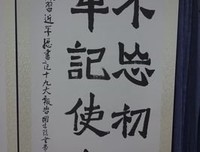 不忘初
牢記使
習近平總書記十九大報告